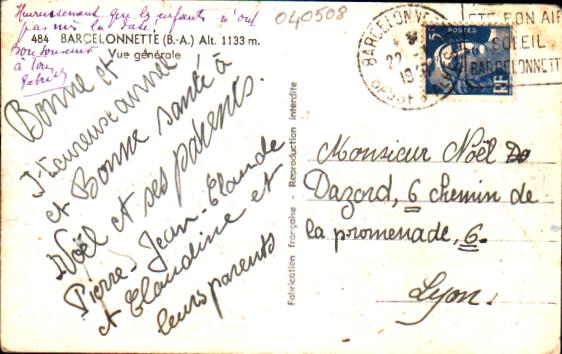 Heureusement que les enfants n'ont
pas mis la date!
Bonbonneur
à tous
040508
484 BARCELONNETTE (B.-A.) Alt. 1133 m.
Vue générale
Bonne et
Heureuse année
et Bonne santé à
Noël et ses parents.
Pierre, Jean-Claude
et Claudine et
leurs parents
Fabrication française - Reproduction interdite
BARCELONNETTE
BSES ALPES
POSTES
RF
ETE BON AIR
SOLEIL
BARCELONNETTE
Monsieur Noël
Dazord, 6 chemin de
la promenade, 6.
Lyon.